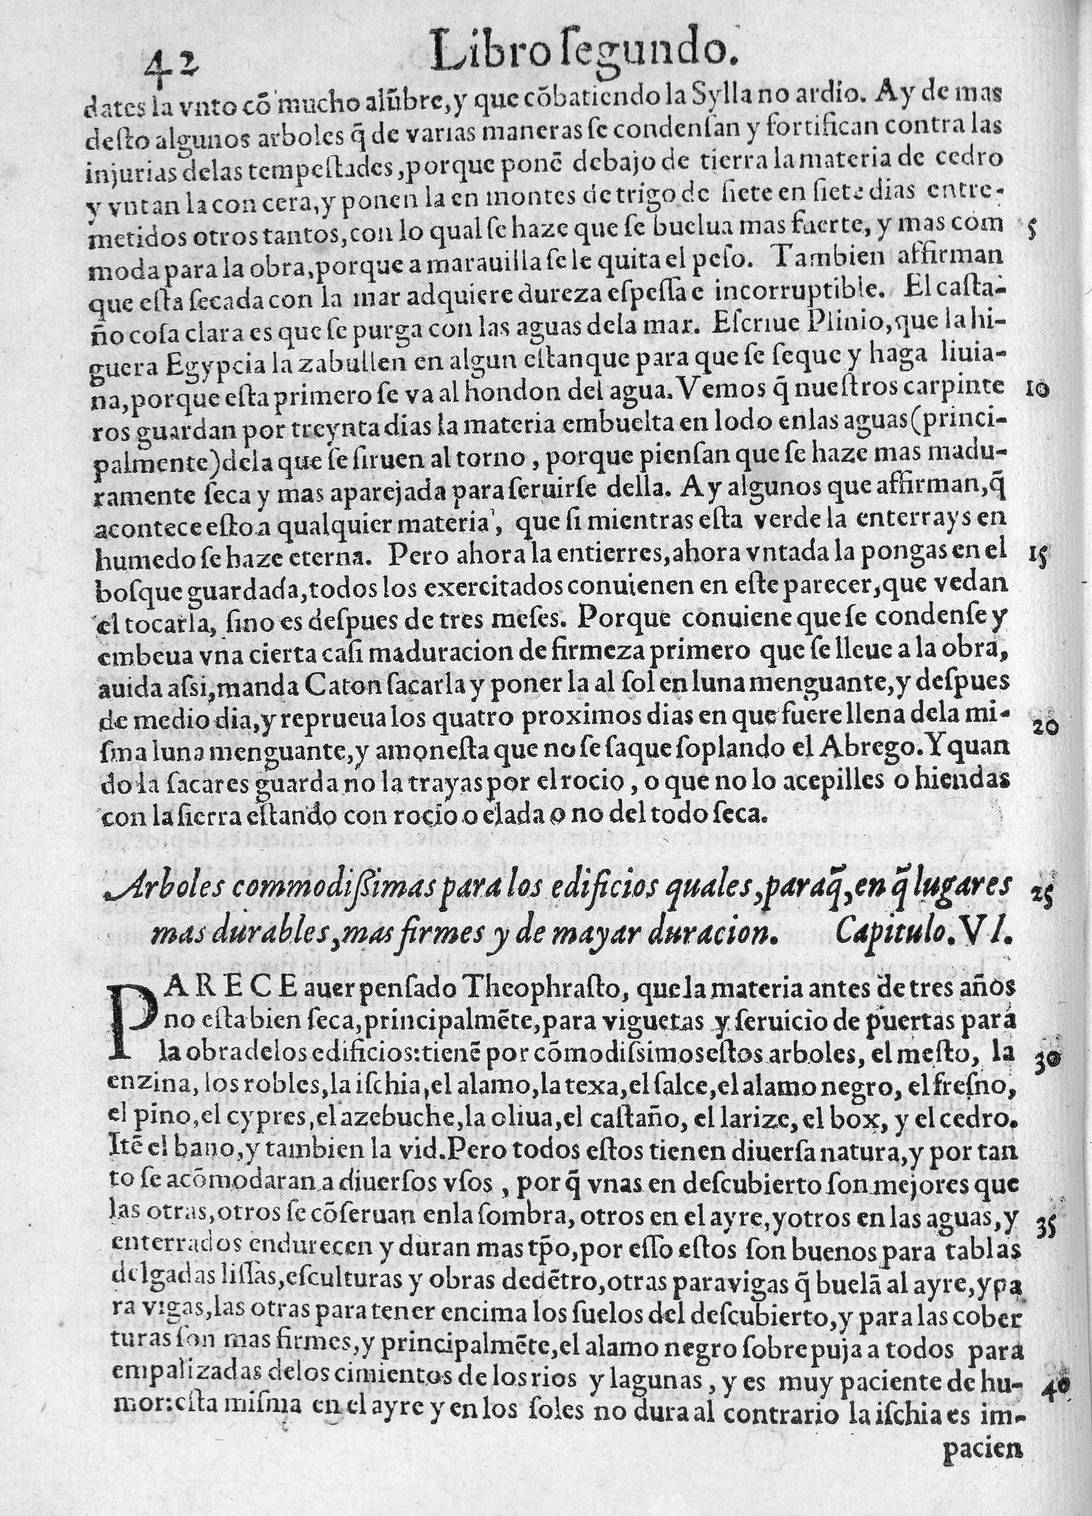 42 Libro ſegundo.
dates la vnto cõ mucho alũbre,y que cõbatiendo la Sylla no ardio. Ay de mas
deſto algunos arboles q̃ de varias maneras ſe condenſan y fortifican contra las
injurias delas tempeſtades,porque ponẽ debajo de tierra la materia de cedro
y vntan la con cera,y ponen la en montes de trigo de ſiete en ſiete dias entre-
metidos otros tantos,con lo qual ſe haze que ſe buelua mas fuerte, y mas com 5
moda para la obra,porque a marauilla ſe le quita el peſo. Tambien affirman
que eſta ſecada con la mar adquiere dureza eſpeſſa e incorruptible. El caſta-
ño coſa clara es que ſe purga con las aguas dela mar. Eſcriue Plinio,que la hi-
guera Egypcia la zabullen en algun eſtanque para que ſe ſeque y haga liuia-
na,porque eſta primero ſe va al hondon del agua. Vemos q̃ nueſtros carpinte 10
ros guardan por treynta dias la materia embuelta en lodo enlas aguas(princi-
palmente)dela que ſe ſiruen al torno , porque pienſan que ſe haze mas madu-
ramente ſeca y mas aparejada para ſeruirſe della. Ay algunos que affirman,q̃
acontece eſto a qualquier materia, que ſi mientras eſta verde la enterrays en
humedo ſe haze eterna. Pero ahora la entierres,ahora vntada la pongas en el 15
boſque guardada,todos los exercitados conuienen en eſte parecer,que vedan
el tocarla, ſino es deſpues de tres meſes. Porque conuiene que ſe condenſe y
embeua vna cierta caſi maduracion de firmeza primero que ſe lleue a la obra,
auida aſsi,manda Caton ſacarla y poner la al ſol en luna menguante,y deſpues
de medio dia,y reprueua los quatro proximos dias en que fuere llena dela mi- 20
ſma luna menguante,y amoneſta que no ſe ſaque ſoplando el Abrego. Y quan
do la ſacares guarda no la trayas por el rocio , o que no lo acepilles o hiendas
con la ſierra eſtando con rocio o elada o no del todo ſeca.
Arboles commodiſsimas para los edificios quales,paraq̃,en q̃ lugares 25
mas durables,mas firmes y de mayar duracion. Capitulo. VI.
PARECE auer penſado Theophraſto, que la materia antes de tres años
no eſta bien ſeca,principalmẽte,para viguetas y ſeruicio de puertas para
la obra delos edificios:tienẽ por cõmodiſsimos eſtos arboles, el meſto, la 30
enzina, los robles,la iſchia,el alamo,la texa,el ſalce,el alamo negro, el freſno,
el pino,el cypres,el azebuche,la oliua,el caſtaño, el larize, el box, y el cedro.
Itẽ el bano,y tambien la vid.Pero todos eſtos tienen diuerſa natura,y por tan
to ſe acõmodaran a diuerſos vſos , por q̃ vnas en deſcubierto ſon mejores que
las otras,otros ſe cõſeruan enla ſombra, otros en el ayre,yotros en las aguas,y 35
enterrados endurecen y duran mas tp̃o,por eſſo eſtos ſon buenos para tablas
delgadas liſſas,eſculturas y obras dedẽtro,otras para vigas q̃ buelã al ayre,y pa
ra vigas,las otras para tener encima los ſuelos del deſcubierto,y para las cober
turas ſon mas firmes,y principalmẽte,el alamo negro ſobre puja a todos para
empalizadas delos cimientos de los rios y lagunas , y es muy paciente de hu- 40
mor:eſta miſma en el ayre y en los ſoles no dura al contrario la iſchia es im-
pacien